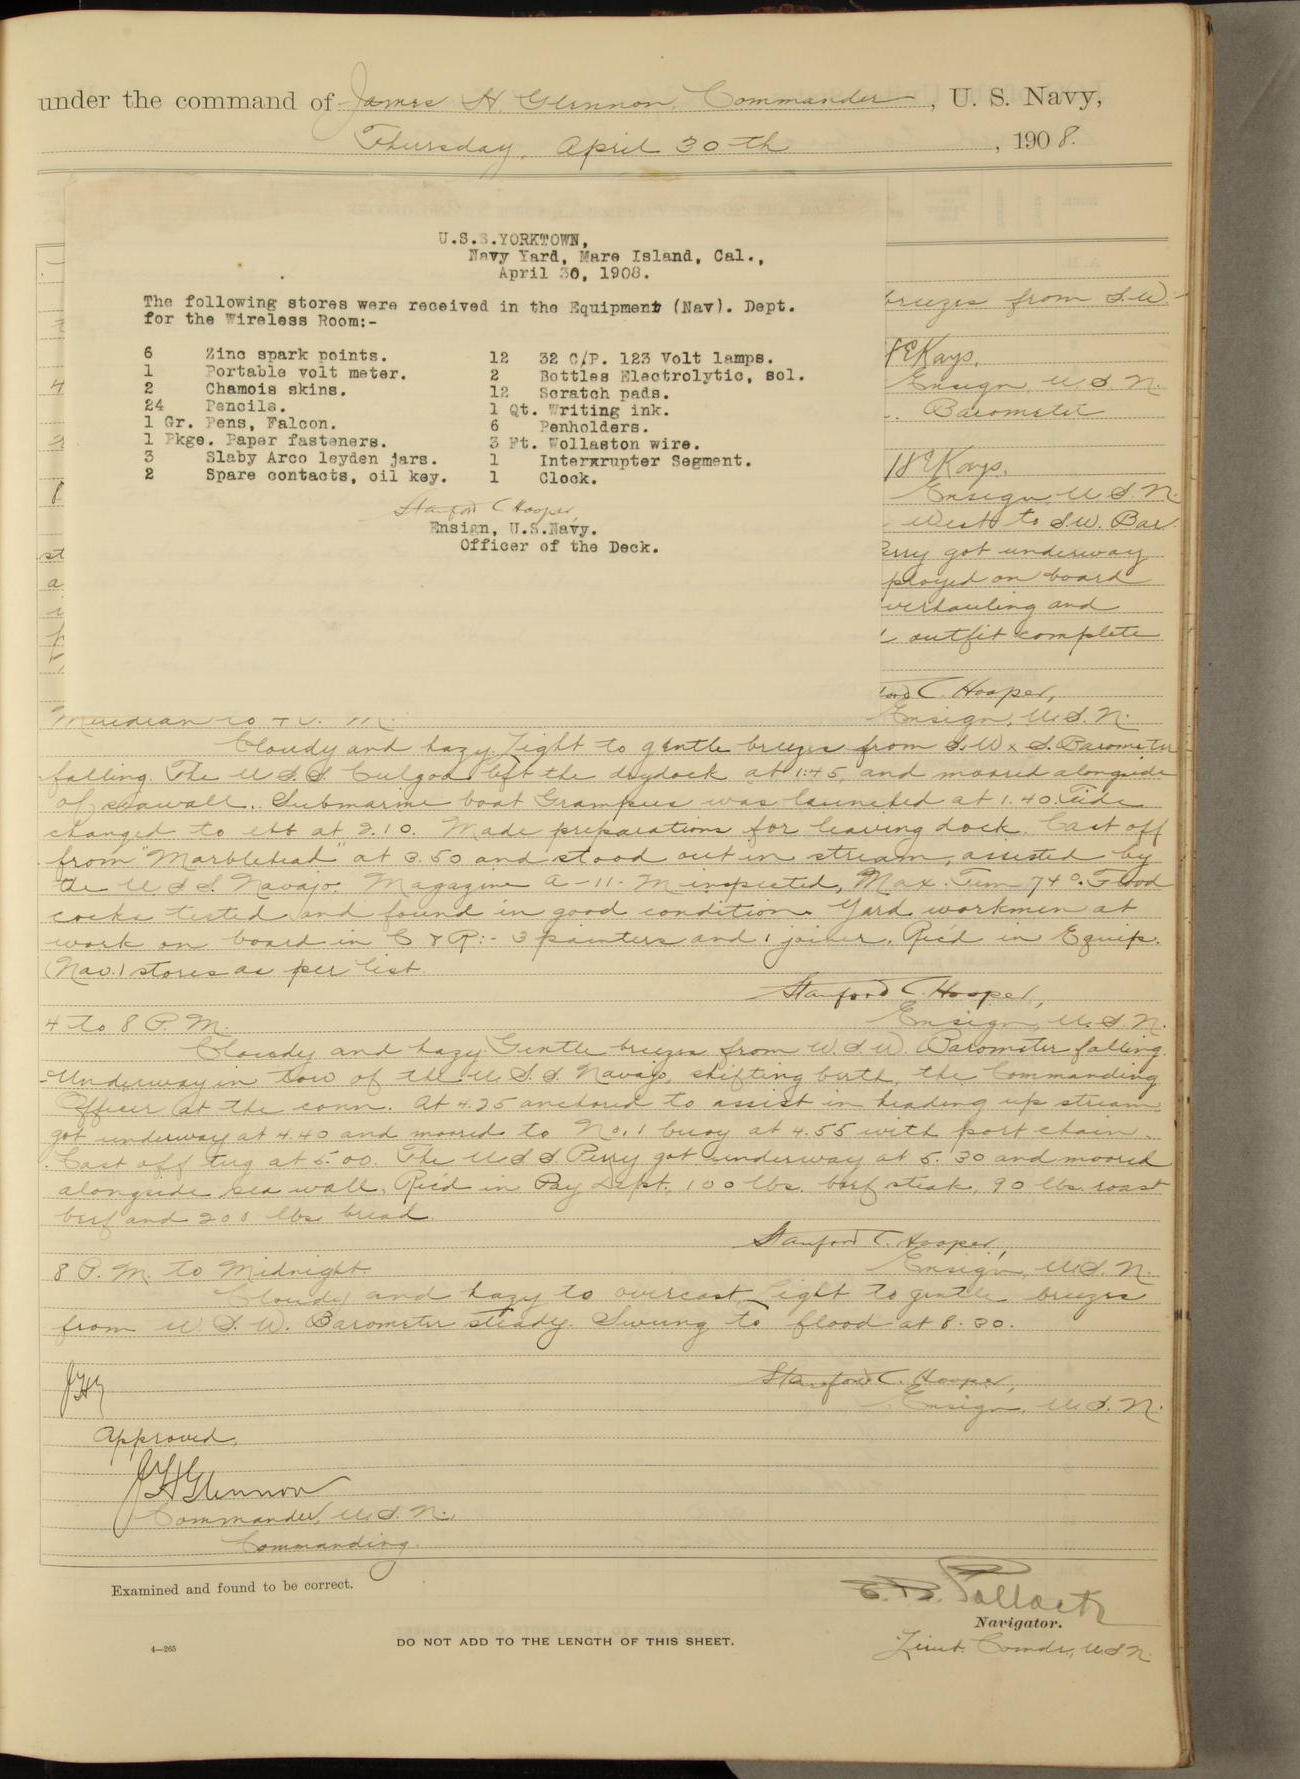 under the command of James H. Glennon, Commander, U. S. Navy,
Thursday, April 30th, 1908.
U.S.S.YORKTOWN,
Navy Yard, Mare Island, Cal.,
April 30, 1908.
The following stores were received in the Equipment (Nav). Dept.
for the Wireless Room:-
6 Zinc spark points.
1 Portable volt meter.
2 Chamois skins.
24 Pencils.
1 Gr. Pens, Falcon.
1 Pkge. Paper fasteners.
3 Slaby Arco leyden jars.
2 Spare contacts, oil key.
12 32 C/P. 123 Volt lamps.
2 Bottles Electrolytic, sol.
12 Scratch pads.
1 Qt. Writing ink.
6 Penholders.
3 Ft. Wollaston wire.
1 Interxrupter Segment.
1 Clock.
Stanford C Hooper,
Ensign, U.S.Navy.
Officer of the Deck.
breezes from S.W.
H E Kays,
Ensign, U.S.N.
Barometer
H E Kays,
Ensign, U.S.N.
West to S.W. Bar.
Perry got underway
ployed on board
verhauling and
outfit complete
ford C. Hooper,
Ensign, U.S.N.
Meridian to 4 P. M.
Cloudy and hazy. Light to gentle breezes from S.W x S. Barometer
falling. The U.S.S. Culgoa left the drydock at 1:45, and moored alongside
of seawall. Submarine boat Grampus was launched at 1.40. Tide
changed to ebb at 2.10. Made preparations for leaving dock. Cast off
from "Marblehead" at 3.50 and stood out in stream, assisted by
the U.S.S. Navajo. Magazine A-11-M inspected, Max. Tem 74°. Flood
cocks tested and found in good condition. Yard workmen at
work on board in C & R:- 3 painters and 1 joiner. Rec'd in Equip.
(Nav.) stores as per list.
Stanford C. Hooper,
Ensign, U.S.N.
4 to 8 P.M.
Cloudy and hazy. Gentle breezes from W.S.W. Barometer falling.
Underway in tow of the U.S.S. Navajo, shifting berth, the Commanding
Officer at the conn. At 4.25 anchored to assist in heading up stream,
got underway at 4.40 and moored to No. 1 buoy at 4.55 with port chain.
Cast off tug at 5.00. The U S S Perry got underway at 5.30 and moored
alongside sea wall. Rec'd in Pay Dept. 100 lbs. beef steak, 90 lbs. roast
beef and 200 lbs bread.
Stanford C. Hooper,
Ensign, U.S.N.
8 P.M. to Midnight.
Cloudy and hazy to overcast. Light to gentle breezes
from W.S.W. Barometer steady. Swung to flood at 8.30.
Stanford C. Hooper,
Ensign, U.S.N.
JHG
Approved,
J H Glennon
Commander, U.S.N.,
Commanding.
Examined and found to be correct.
E. B. Pollock
Navigator.
Lieut. Comdr., U.S.N.
4—265
DO NOT ADD TO THE LENGTH OF THIS SHEET.